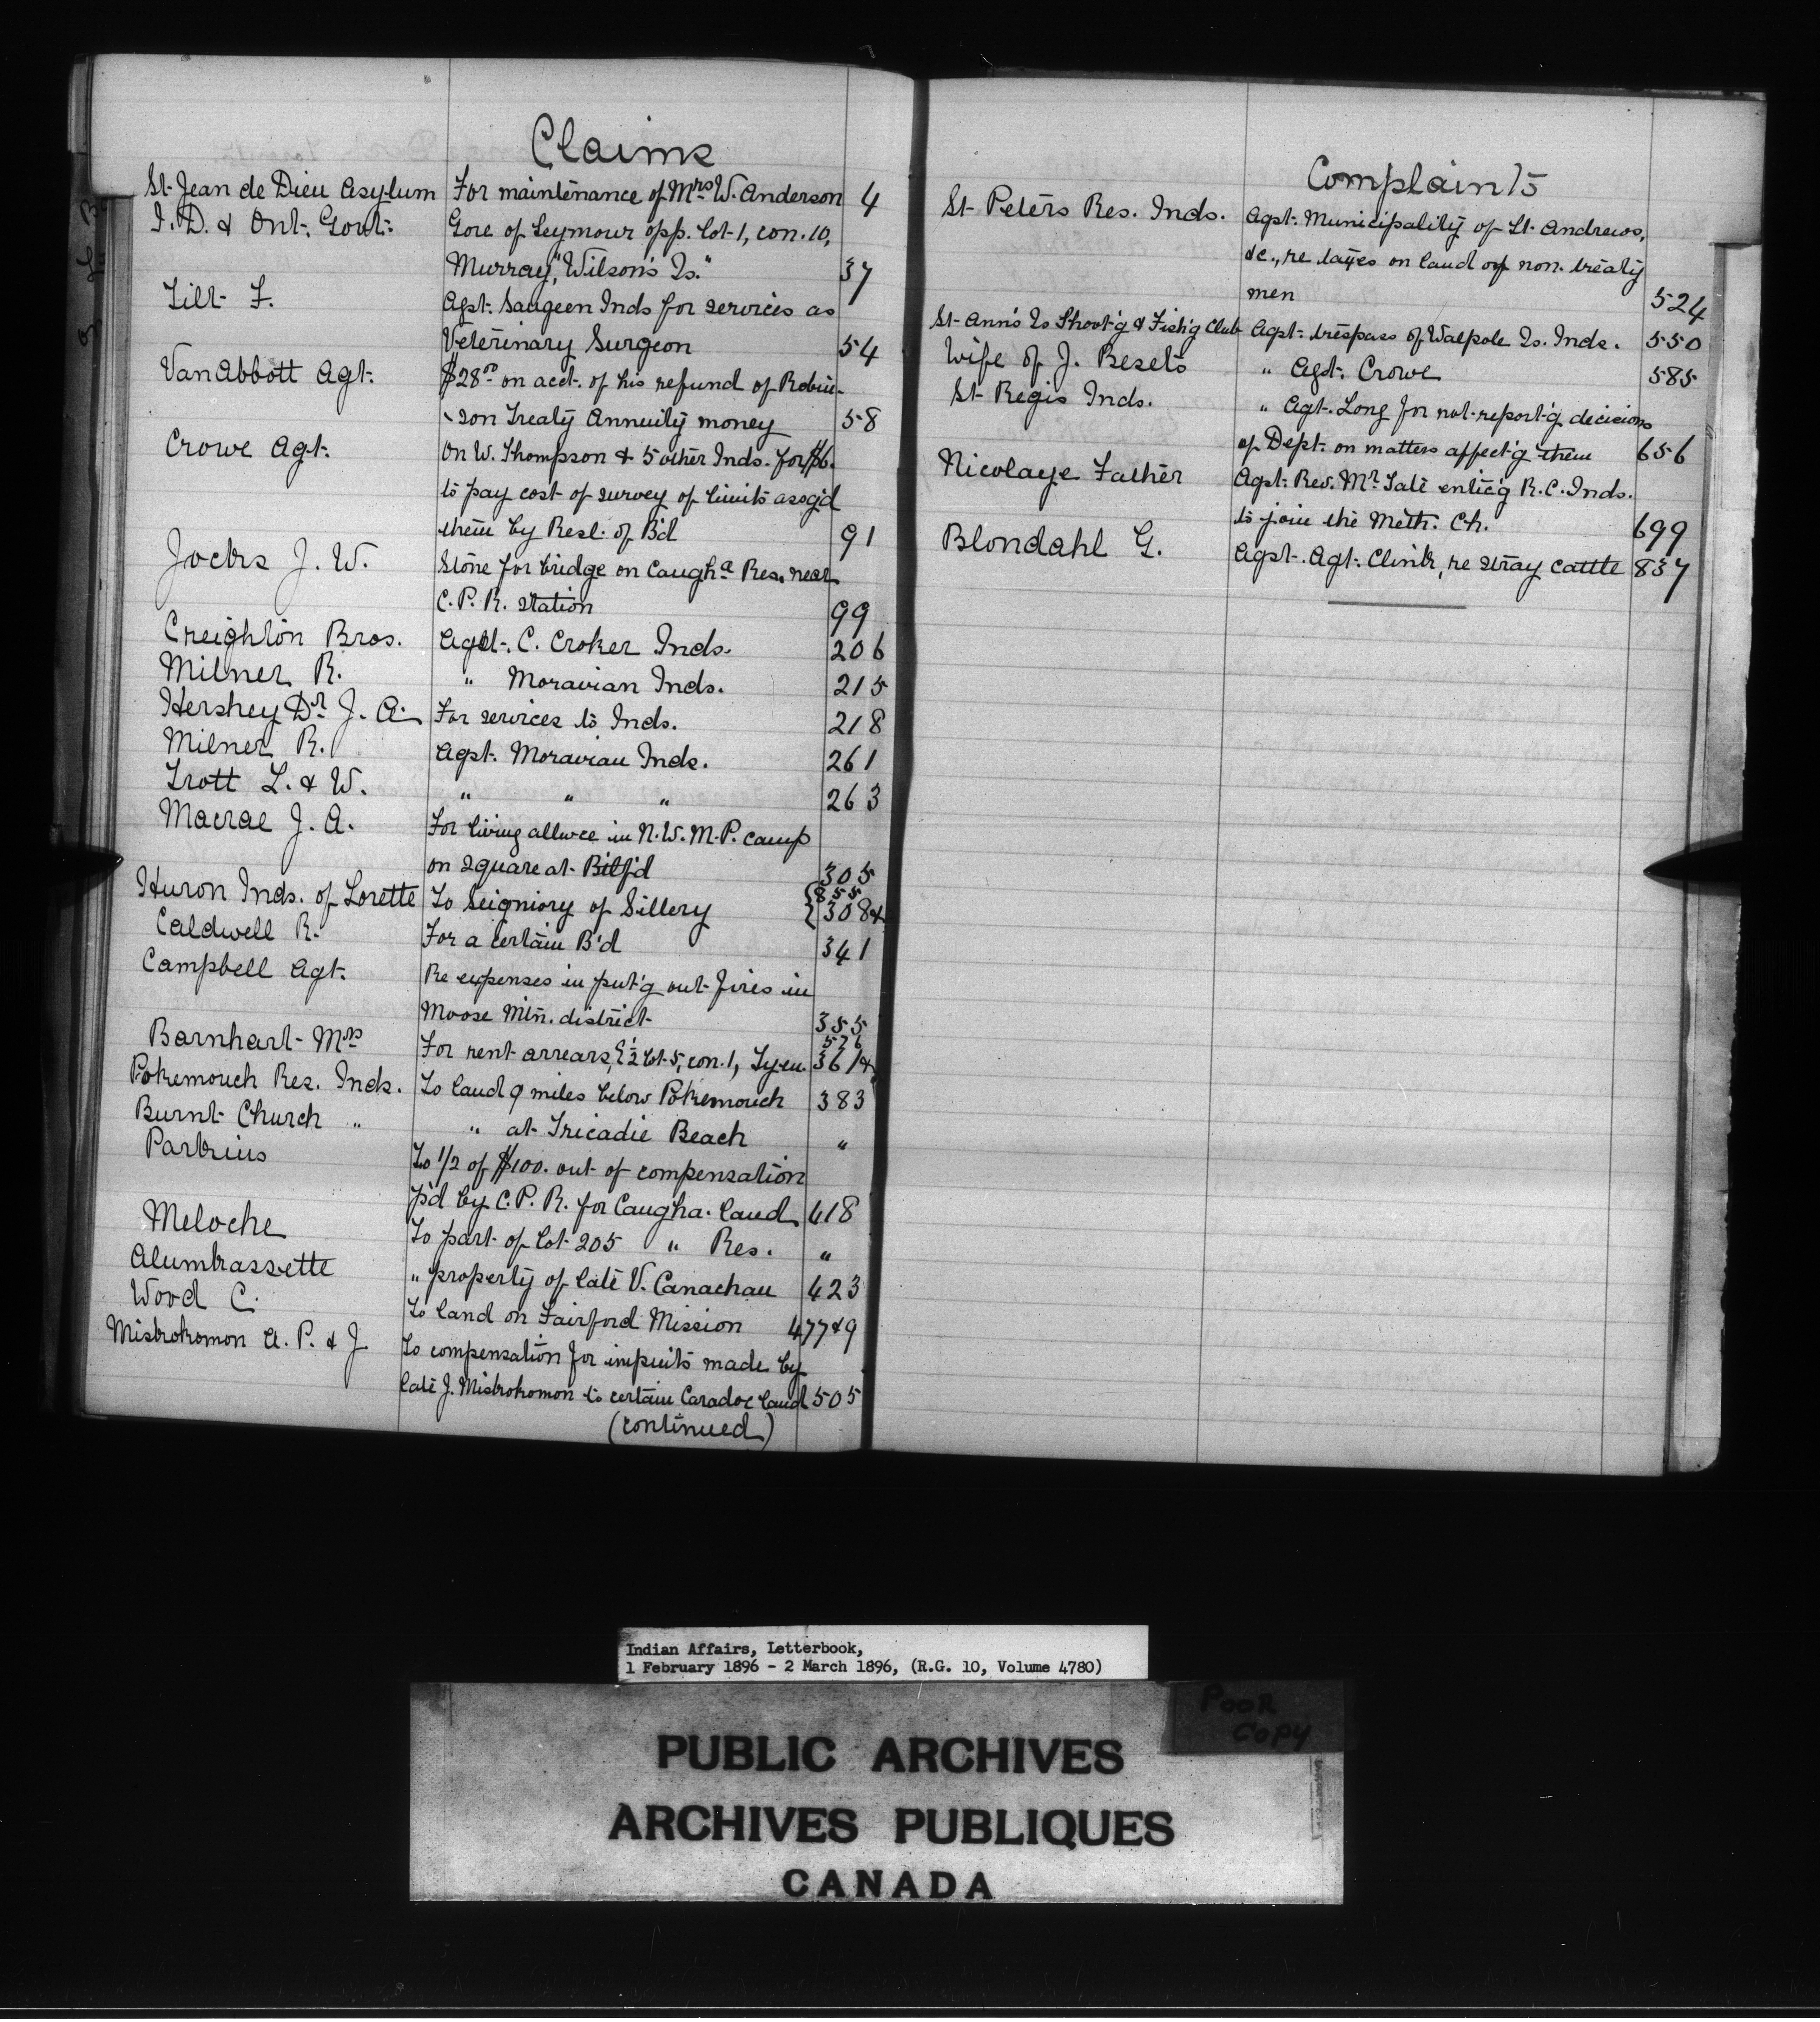 Claims
St. Jean de Dieu Asylum For maintenance of Mrs W. Anderson 4
I. D. & Ont. Govt. Gore of Seymour opp. lot 1, con. 10,
Murray, "Wilson's Is." 37
Tilt F. Agst. Saugeen Inds for services as
Veterinary Surgeon 54
Van Abbott Agt. $28 on acct. of his refund of Robin-
-son Treaty Annuity money 58
Crowe Agt. On W. Thompson & 5 other Inds. for $6.
to pay cost of survey of limits assg'd
them by Resl. of B'd 91
Jocks J. W. Stone for bridge on Caugha Res. near
C. P. R. station 99
Creighton Bros. Agst. C. Croker Inds. 206
Milner R. " Moravian Inds. 215
Hershey Dr J. A. For services to Inds. 218
Milner R. Agst. Moravian Inds. 261
Trott L. & W. " " " 263
Macrae J. A. For living allwce in N. W. M. P. camp
on square at Batlf'd 305
Huron Inds. of Lorette To Seigniory of Sillery {855 308&
Caldwell R. For a certain B'd 341
Campbell Agt. Re expenses in put'g out fires in
Moose Mtn. district 355
Barnhart Mrs For rent arrears, E½ lot 5, con. 1, Tyen. 361& 576
Pokemouch Res. Inds. To land 9 miles below Pokemouch 383
Burnt Church " " at Tricadie Beach "
Parkins To 1/2 of $100. out of compensation
p'd by C. P. R. for Caugha. land 418
Meloche To part of lot 205 " Res. "
Alumkassette " property of late V. Canachau 423
Wood C. To land on Fairford Mission 477&9
Miskokomon A. P. & J. To compensation for impts made by
late J. Miskokomon to certain Caradoc land 505
(continued)
Complaints
St. Peters Res. Inds. Agst. Municipality of St. Andrews,
&c., re taxes on land of non. treaty
men 524
St. Ann's Is Shoot'g & Fish'g Club Agst. trespass of Walpole Is. Inds. 550
Wife of J. Beseto " Agt. Crowe 585
St Regis Inds. " Agt. Long for not report'g decisions
of Dept. on matters affect'g them 656
Nicolaye Father Agst. Rev. Mr Tate entic'g R. C. Inds.
to join the Meth. Ch. 699
Blondahl G. Agst. Agt. Clink, re stray cattle 837
Indian Affairs, Letterbook,
1 February 1896 - 2 March 1896, (R.G. 10, Volume 4780)
POOR
COPY
PUBLIC ARCHIVES
ARCHIVES PUBLIQUES
CANADA